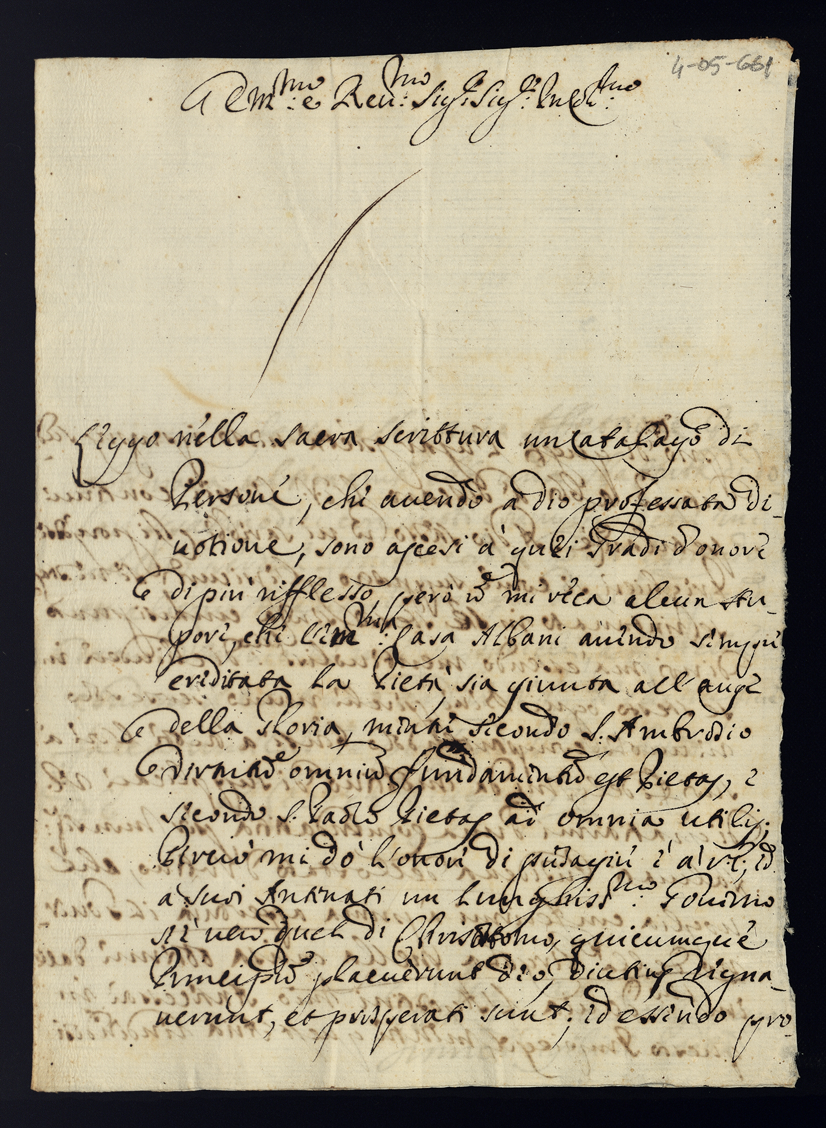 4-05-661
Em:mo e Reu:mo Sig:r Sig:r
Leggo nella sacra scrittura un Catalago di
Persone, che auendo a dio professata di-
uotione, sono ascesi a' quei Gradi d'onore
e di piu' rifflesso, però nõ mi reca alcun stu-
pore, che l'Em:ma Casa Albani auendo sempre
ereditata la Pietà, sia giunta all'auge
della Gloria, mentre secondo S. Ambrosio
omniũ fundamentũ est Pietas, e
secondo S. Paolo Pietas ad omnia utilis;
Perciò mi do' l'onore di e a' V: E, ed
a suoi Antenati un lunghiss:mo Gouerno
se è uero quel di Chrisostomo, quicumque
Principũ placuerunt deo, diutius Regna-
uerunt, et prosperati sunt; ed essendo pro-